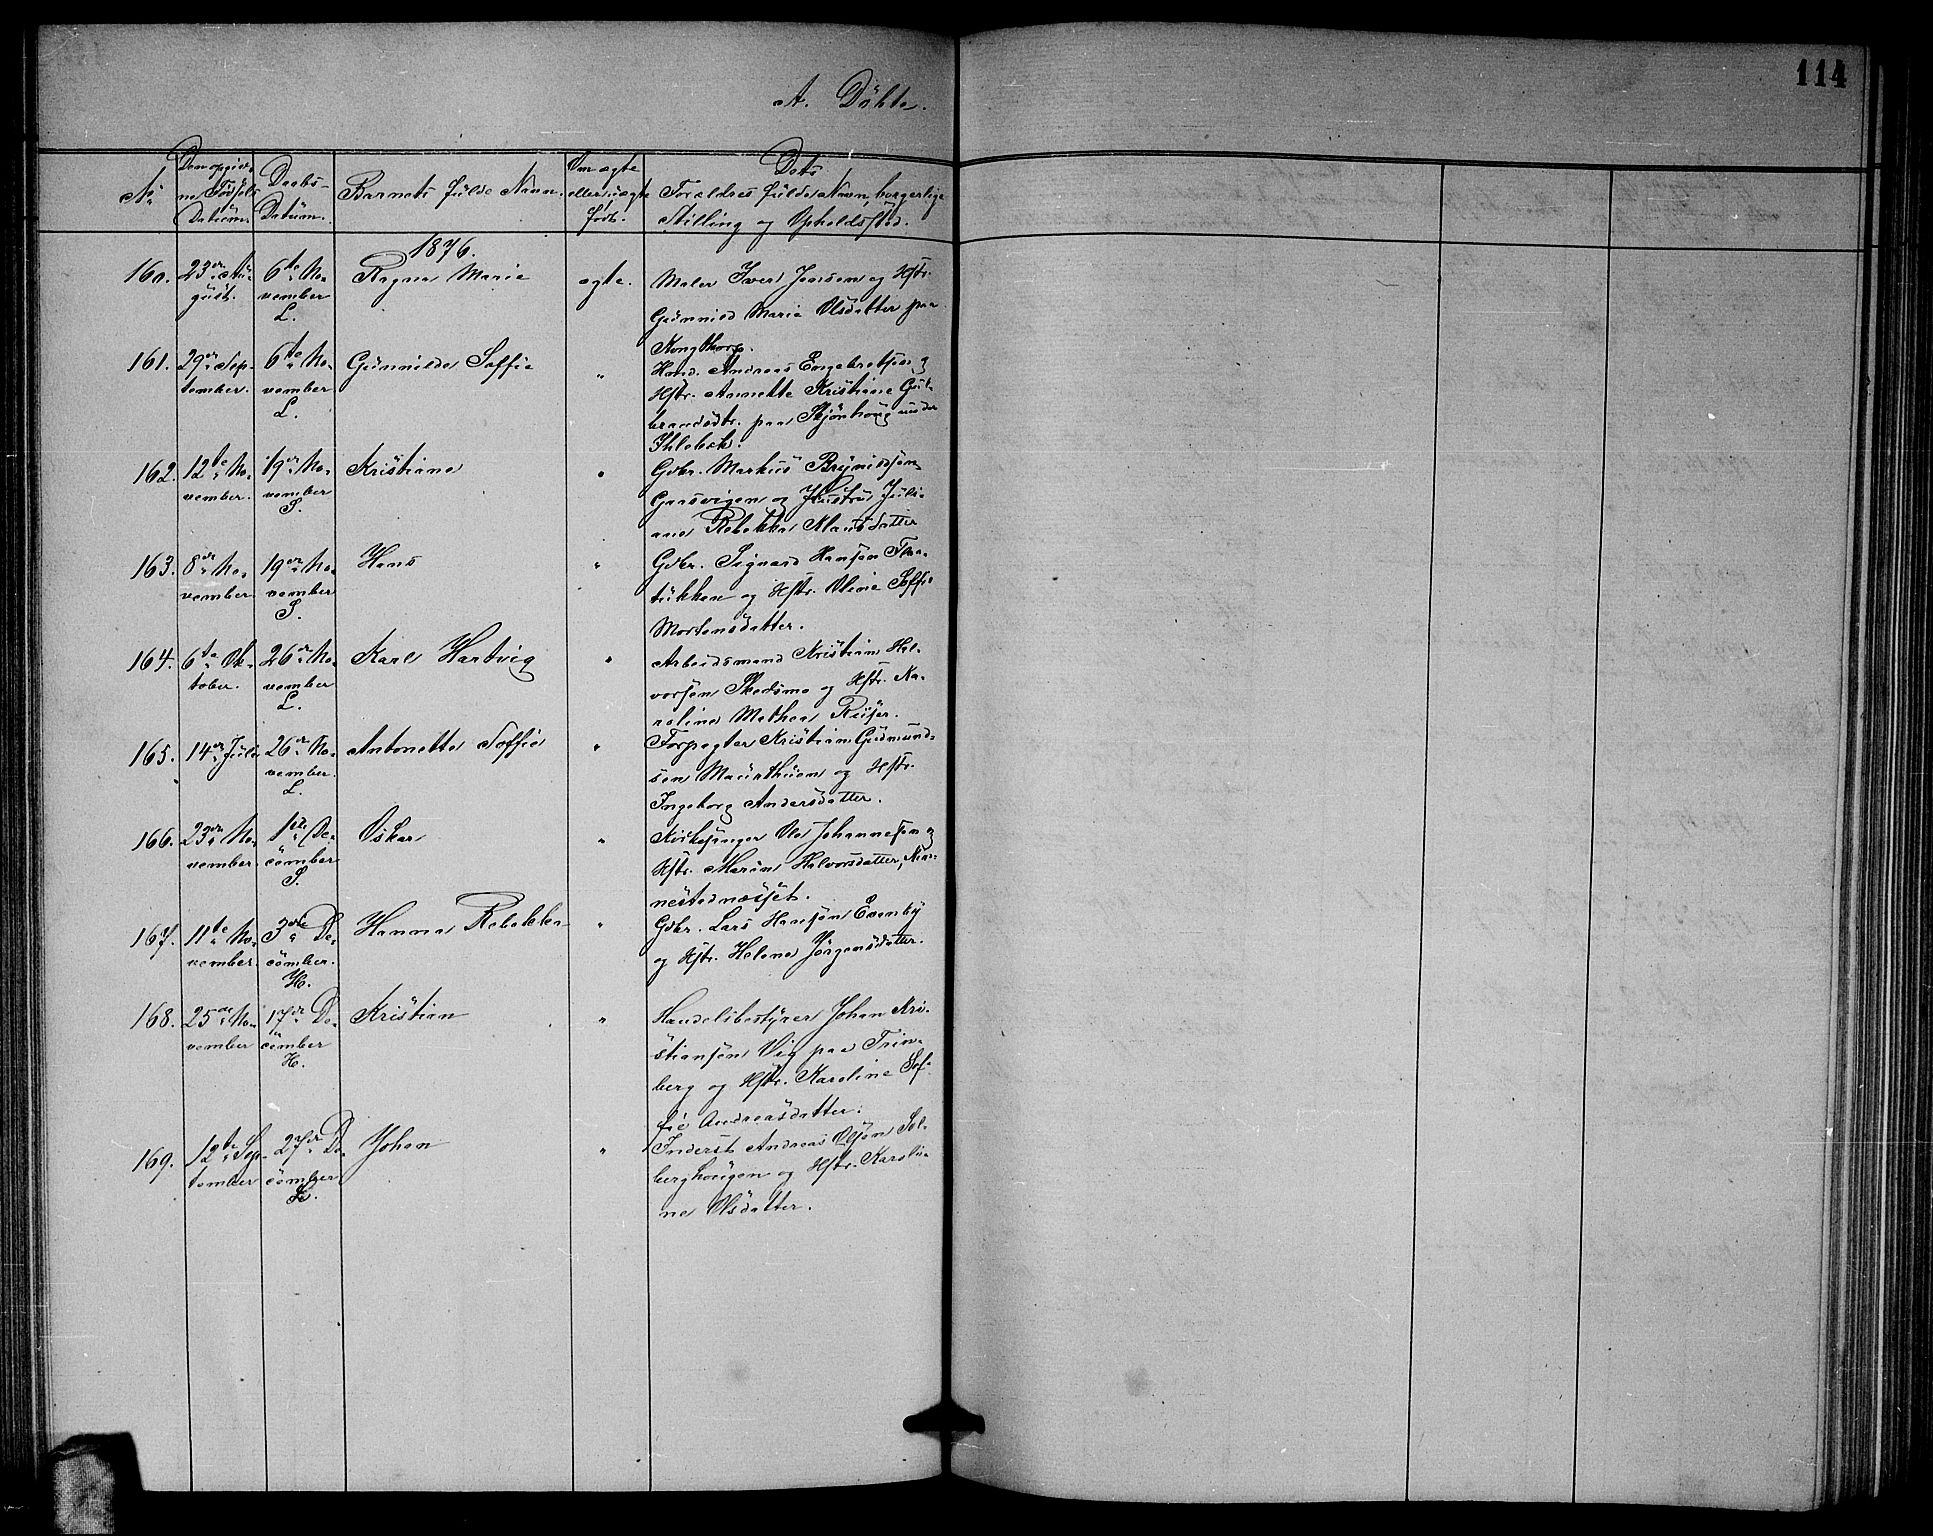 114
A. Döbte.
No.
Den opgiv-
ne Fødsels
Datum.
Daabs-
Datum.
Barnets fulde Navn.
Om ægte
eller uægte
født.
Dets
Forældres fulde Navn, borgerlige
Stilling og Opholdssted.
1876.
160.
23de Au-
gust.
6te No-
vember
L.
Ragna Marie
ægte.
Maler Iver Jensen og Hstr.
Gunnild Marie Olsdatter paa
Kongthorp.
161.
29de Sep-
tember.
6te No-
vember
L.
Gunnilda Soffie
"
Hmd. Andreas Engebretsen og
Hstr. Annette Kristiane Gul-
brandsdtr. paa Skjønhoug under
Ihlebek.
162.
12te No-
vember.
19de No-
vember
S.
Kristiane
"
Gdbr. Markus Brynildsen
Gaasvigen og Hustru Juli-
ane Rebekka Klausdatter
163.
8de No-
vember
19de No-
vember
S.
Hans
"
Gdbr. Sigvard Hansen
og Hstr. Oline Soffie
Mortensdatter.
164.
6te Ok-
tober.
26de No-
vember
L.
Karl Hartvig
"
Arbeidsmand Kristian Hal-
vorsen Skedsmo og Hstr. Ka-
roline Mathea Reiser.
165.
14de Juli
26de No-
vember.
L.
Antonette Soffie
"
Forpagter Kristian Gudmund-
sen Maurthuen og Hstr.
Ingeborg Andersdatter.
166.
23de No-
vember.
1ste De-
cember
S.
Oskar
"
Kirkesanger Ole Johannesen og
Hstr. Maren Halvorsdatter,
nestadnæsset.
167.
11te No-
vember.
3die De-
cember.
H.
Hanna Rebekka
"
Gdbr. Lars Hansen Evenby
og Hstr. Helene Jørgensdatter.
168.
25de No-
vember
17de De-
cember
H.
Kristian
"
Handelsbestyrer Johan Kri-
stiansen Vig paa Trin-
berg og Hstr. Karoline Sof-
fie Andreasdatter.
169.
12te Sep-
tember
27de De-
cember
L.
Johan
"
Inderst Andreas Olsen Sol-
berghougen og Hstr. Karoli-
ne Olsdatter.